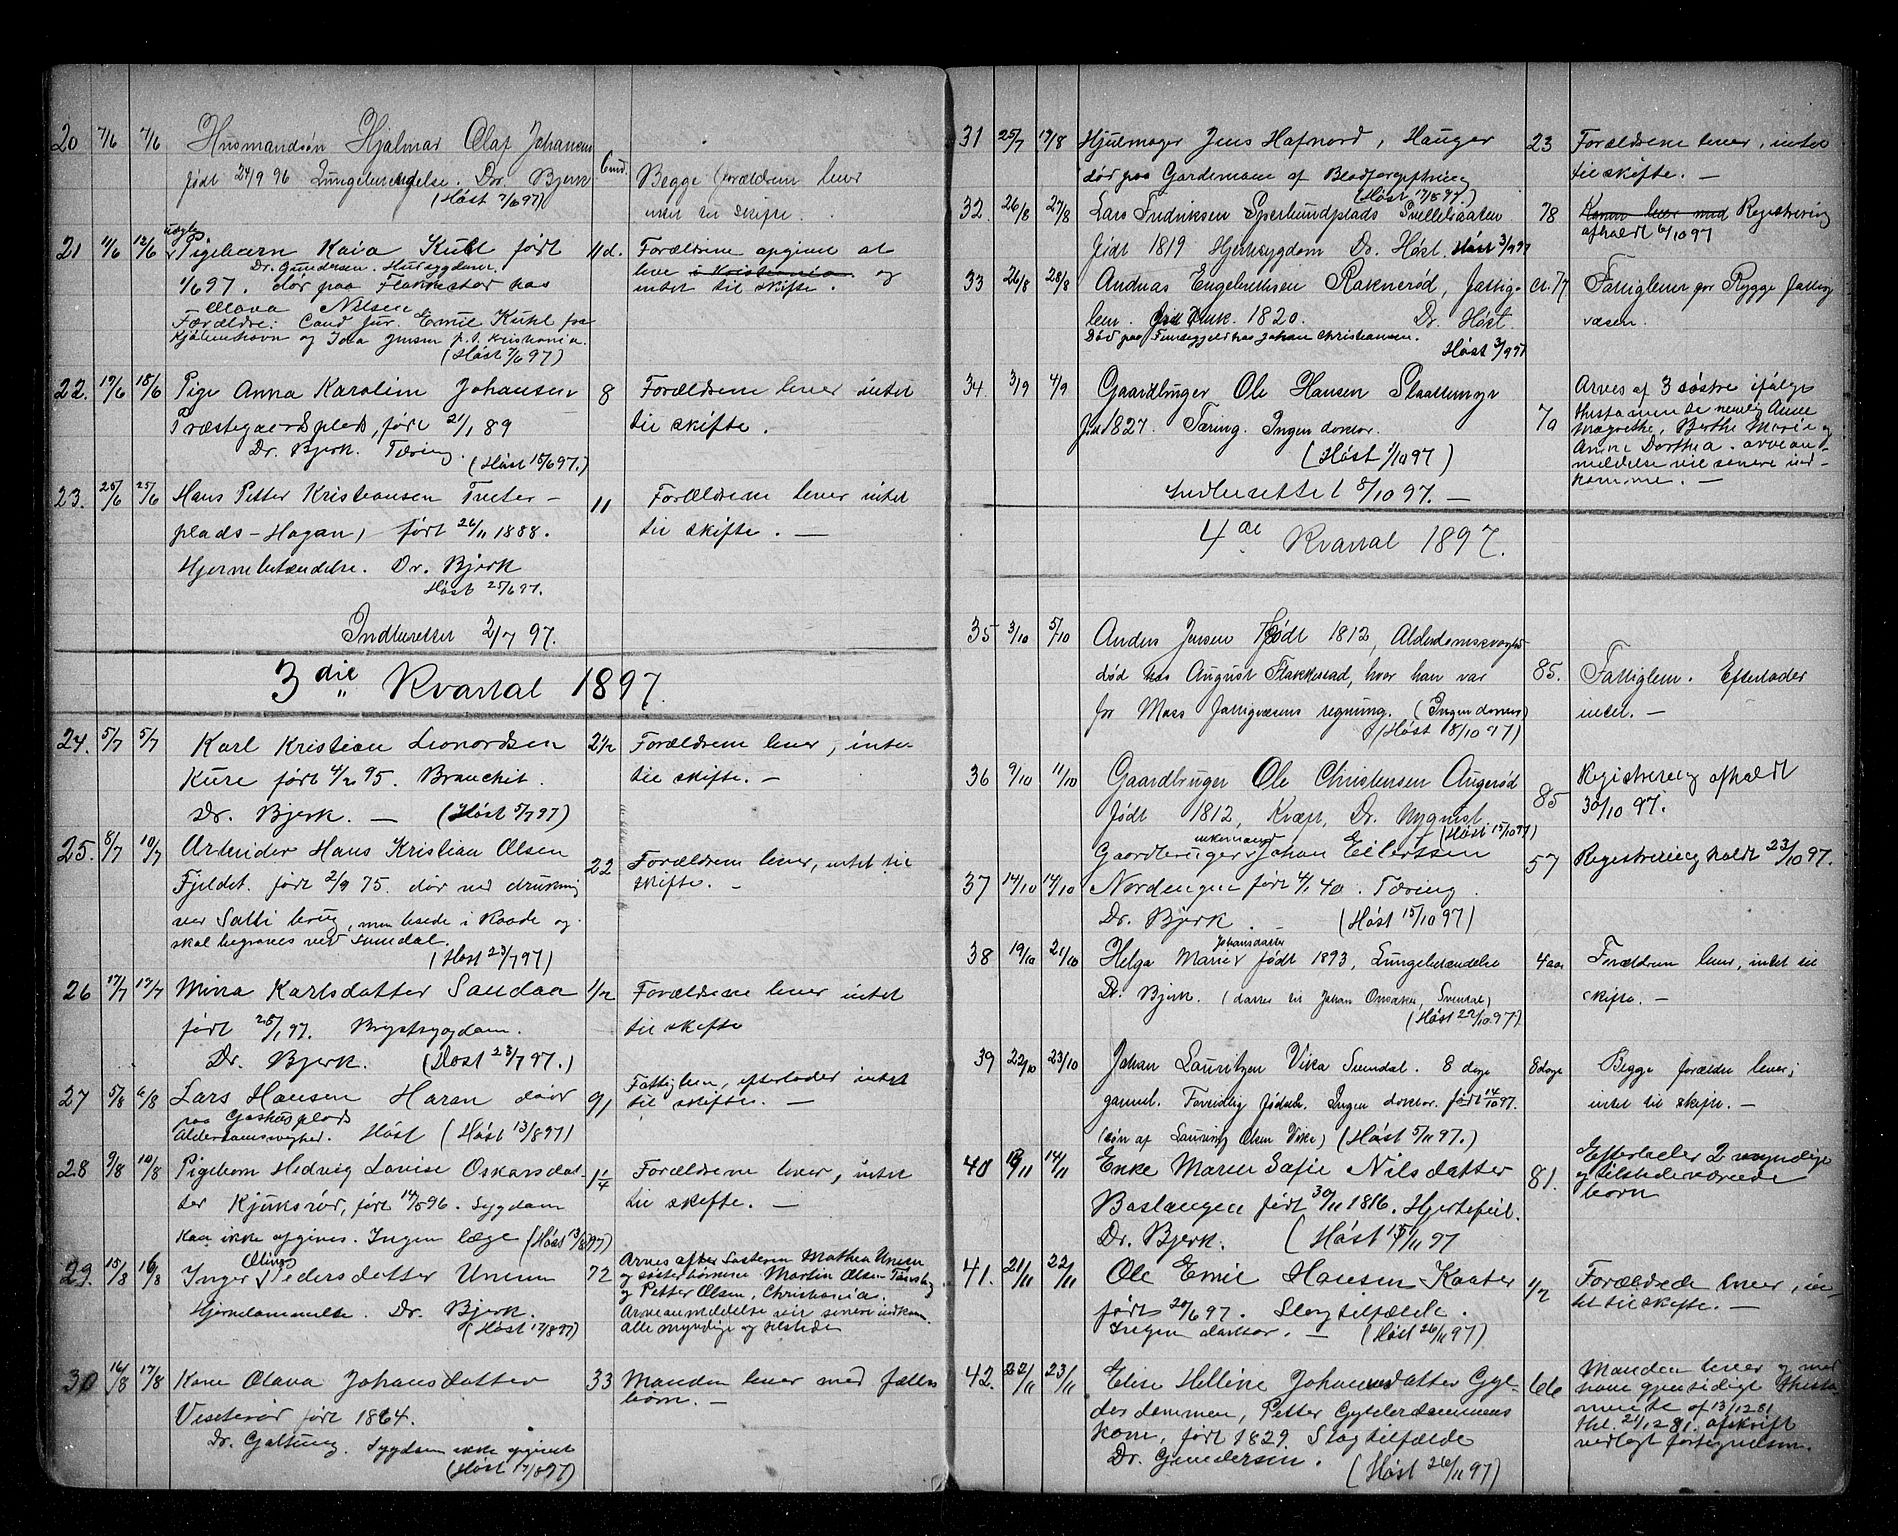 20 7/6 7/6 Husmandsøn Hjalmar Olaf Johansen 6 md.
født 24/9 96 Lungebetændelse. Dr. Bjerk Begge forældrene lever
(Høst 7/6 97) intet til skifte.
21 11/6 12/6 uægte Pigebarn Kaia Kuhl født 11 d. Forældrene opgives at
Dr. Gundersen. Hudsygdom. leve i Kristiania og
1/6 97. dør paa Flakkestad hos intet til skifte.
Olava Nilsen
Forældre: Cand jur. Emil Kuhl fra
Kjøbenhavn og Ida Jensen p. t. Kristiania.
(Høst 7/6 97)
22. 17/6 18/6 Pige Anna Karoline Johansen 8 Forældrene lever intet
Præstegaardsplads, født 21/1 89 til skifte.
Dr. Bjerk. Tæring. (Høst 15/6 97.)
23. 25/6 25/6 Hans Petter Kristiansen Tveter- 11 Forældrene lever intet
plads-Hagan, født 26/11 1888. til skifte. —
Hjernebetændelse. Dr. Bjerk
Høst 25/6 97.
Indberettet 2/7 97.
3die Kvartal 1897.
24. 5/7 5/7 Karl Kristian Leonardsen 2 1/2 Forældrene lever, intet
Kure født 4/2 95. Bronchit. til skifte. —
Dr. Bjerk. — (Høst 5/7 97)
25. 8/7 10/7 Arbeider Hans Kristian Olsen 22 Forældrene lever, intet til
Fjeldet. født 2/9 75. dør ved drukning skifte. —
ved brug, men boede i Raade og
skal begraves ved Svindal.
(Høst 23/7 97)
26 17/7 17/7 Mina Karlsdatter Sandaa 1/2 Forældrene lever intet
født 25/1 97. Brystsygdom. til skifte
Dr. Bjerk. (Høst 23/7 97.)
27 5/8 6/8 Lars Hansen Haran døde 91 Fattiglem, efterlader intet
paa plads til skifte. —
Alderdomssvaghed. Høst (Høst 13/8 97)
28 9/8 10/8 Pigebarn Hedvig Lovise Oskarsdat- 1 1/4 Forældrene lever, intet
ter Kjuksrør, født 14/5 96. Sygdom til skifte. —
kan ikke opgives. Ingen læge (Høst 13/8 97)
29. 15/8 16/8 Inger Oline Pedersdatter Unum 72 Arves efter Søsteren Mathea Unum
Hjernelammelse. Dr. Bjerk. og søsterbørnene Martin Olsen
(Høst 17/8 97) og Petter Olsen, Christiania.
Arveanmeldelse vil senere indkom.
alle myndige og tilstede
30 16/8 17/8 Kone Olava Johansdatter 33 Manden lever med fælles
Visterød født 1864. børn. —
Dr. Galtung. Sygdom ikke opgivet
(Høst 17/8 97)
31 25/7 17/8 Hjulmager Jens Hafnord, Hauger 23 Forældrene lever, intet
død paa Gardemoen af Blodforgiftning til skifte. —
(Høst 17/8 97.)
32. 26/8 27/8 Lars Fredriksen Spertundplads 78 Konen lever med Registrering
født 1819 Hjertesygdom Dr. Høst. Høst 3/9 97 afholdt 6/10 97
33 26/8 28/8 Andreas Engebrethsen Raknerød, fattig- ca. 77 Fattiglem for Rygge fattig
lem. født 1820. Dr. Høst. væsen.
Død paa hos Johan Christiansen.
Høst 3/9 97
34. 3/9 4/9 Gaardbruger Ole Hansen Slaattemyr 70 Arves af 3 søstre ifølge
født 1827. Tæring. Ingen doktor. thestamente nemlig Anne
(Høst 1/10 97) Magrethe, Berthe Marie og
Anne Dorthea. arvean-
meldelse vil senere ind-
komme. —
Indberettet 8/10 97. —
4de Kvartal 1897.
35 3/10 5/10 Anders Jensen født 1812, Alderdomssvaghed
død hos August Flakkestad, hvor han var 85. Fattiglem. Efterlader
for Moss fattigvæsens regning. (Ingen doktor) intet. —
(Høst 8/10 97)
36 9/10 11/10 Gaardbruger Ole Christensen Augerød 85 Registrering afholdt
født 1812, Kræft, Dr. Nyquist 30/10 97.
(Høst 15/10 97)
37 14/10 14/10 Gaardbruger enkemand Johan Eilertsen 57 Registrering holdt 23/10 97.
Nordengen født 4/1 40. Tæring.
Dr. Bjerk. — (Høst 15/10 97)
38 19/10 21/10 Helga Marie Johansdatter født 1893, Lungebetændelse 4 aar Forældrene lever, intet til
Dr. Bjerk. (datter til Johan Onsaker, Svendal) skifte. —
(Høst 22/10 97)
39 22/10 23/10 Johan Lauritzen Vika Svendal. 8 dage 8 dage Begge forældre lever;
gammel. Fortidlig fødsel. Ingen doktor. født 14/10 97. intet til skifte. —
(søn af Lauritz Olsen Vika) (Høst 5/11 97.)
40 13/11 14/11 Enke Maren Sofie Nilsdatter 81. Efterlader 2 myndige
Baslangen født 30/11 1816. Hjertefeil. og tilstedeværende
Dr. Bjerk. (Høst 15/11 97 børn
41. 21/11 22/11 Ole Emil Hansen Kaater 1/2 Forældrede lever, in-
født 20/6 97. Slagtilfælde. tet til skifte. —
Ingen doktor. — (Høst 26/11 97)
42. 22/11 23/11 Elise Helline Johannesdatter Gyl- 66 Manden lever og med
derdammen, Petter Gylderdammens ham gjensidigt thesta-
kone, født 1829. Slagtilfælde mente af 13/12 81
Dr. Gundersen. thl. 21/12 81. afskrift
(Høst 26/11 97) vedlagt fortegnelsen.